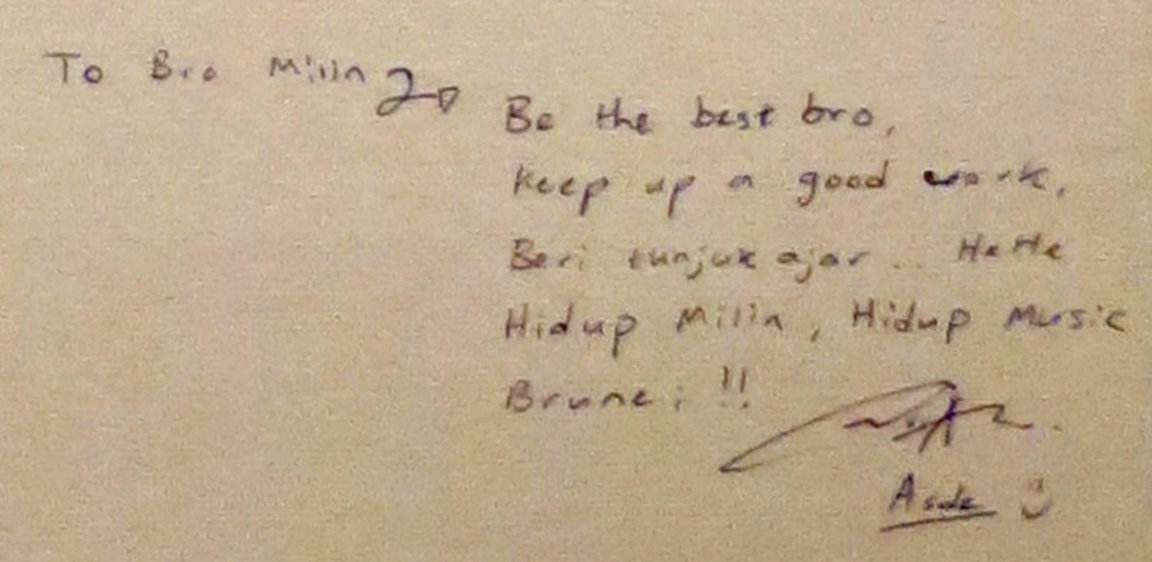 To Bro Milin
Be the best bro,
Keep up a good work.
Beri tunjuk ajar .. HeHe
Hidup Milin, Hidup Music
Brunei !!